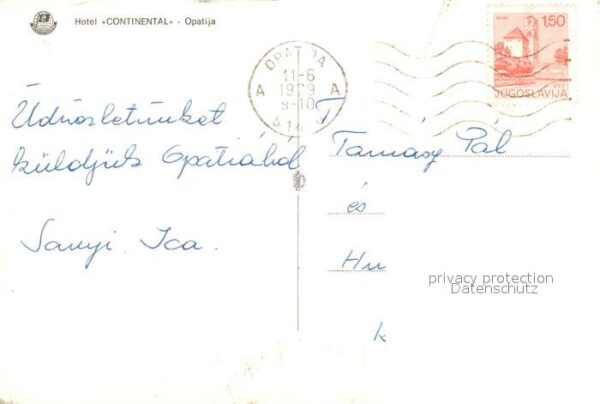 Hotel «CONTINENTAL» - Opatija
OPATIJA
11-6
1979
9-10
A A
BIHAĆ
1,50
JUGOSLAVIJA
Üdvözletünket
küldjük Opatiából
Sanyi Ica.
T
Tamásy Pál
és
Hu
k
privacy protection
Datenschutz